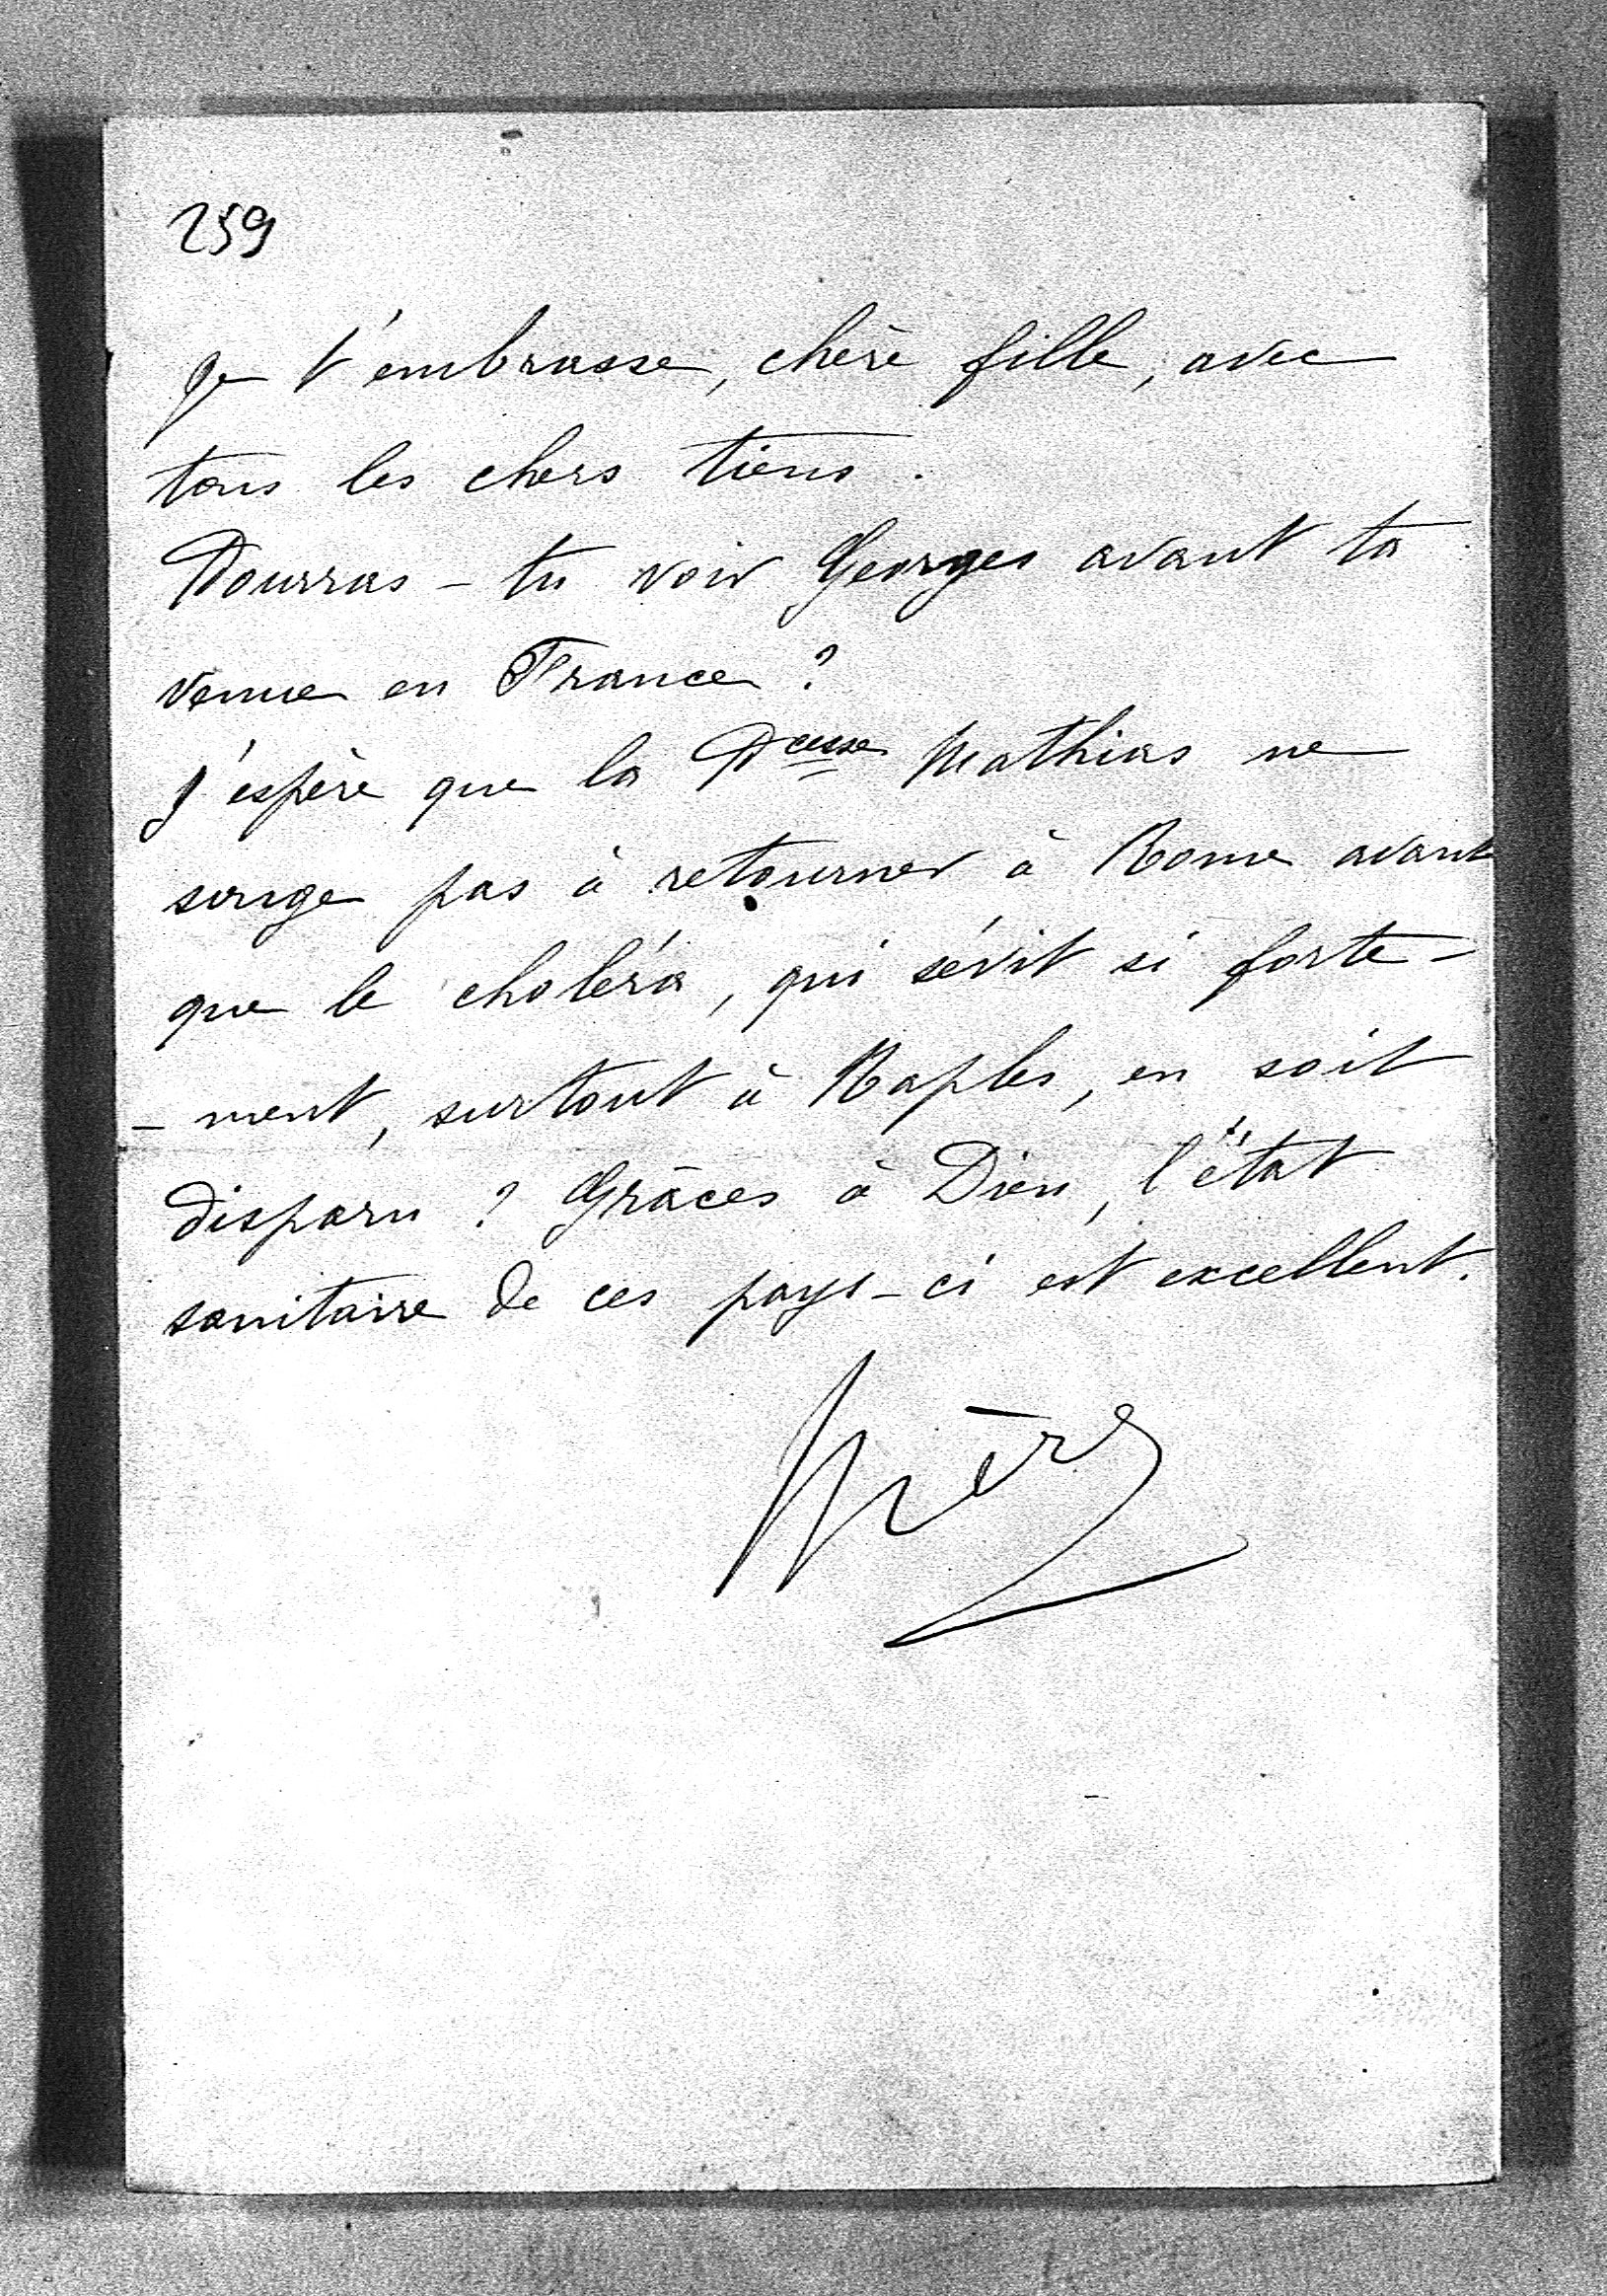 259
Je t'embrasse, chère fille, avec
tous les chers tiens.
Pourras-tu voir Georges avant ta
venue en France ?
J'espère que la Pcesse Mathias ne
songe pas à retourner à Rome avant
que le choléra, qui sévit si forte-
-ment, surtout à Naples, en soit
disparu ? Grâces à Dieu, l'état
sanitaire de ces pays-ci est excellent.
Mère